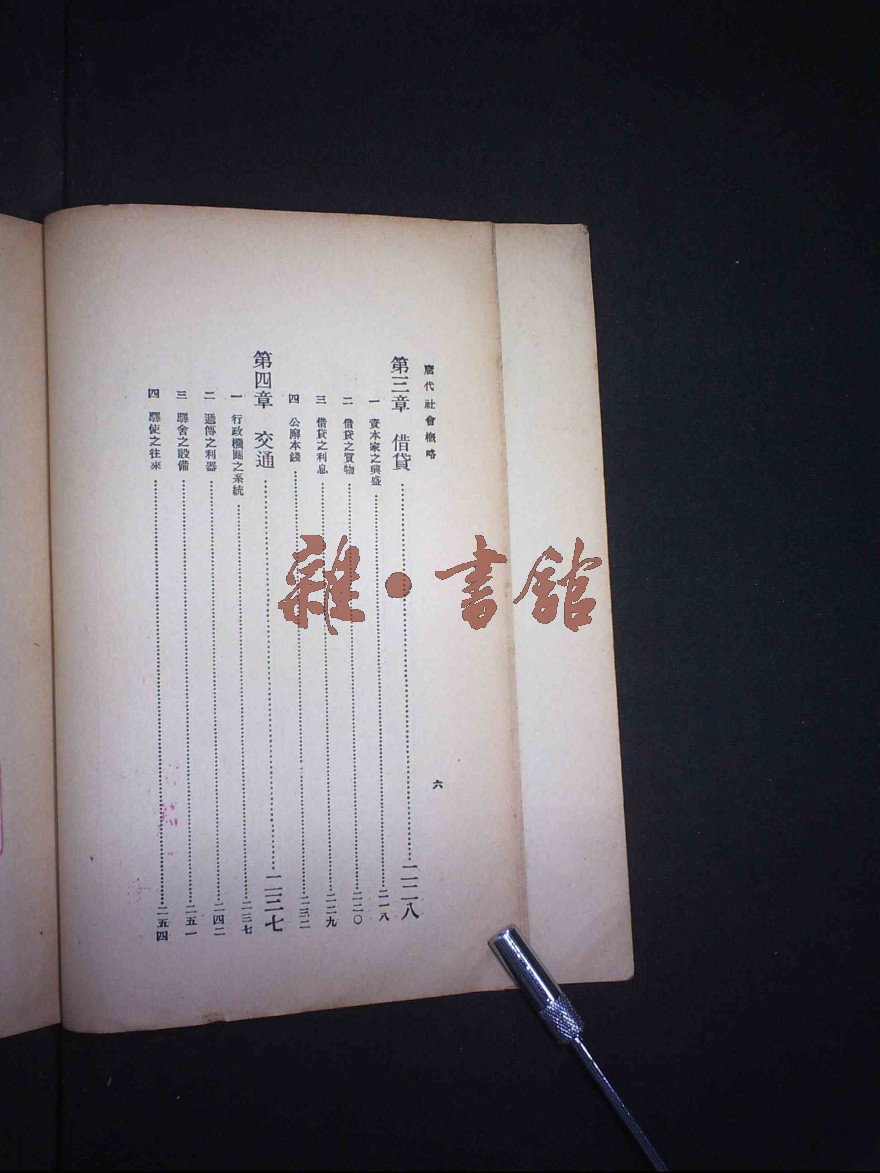 唐代社會概略
六
第三章 借貸……二一八
一 資本家之興盛……二一八
二 借貸之質物……二二〇
三 借貸之利息……二二九
四 公廨本錢……二三二
第四章 交通……二三七
一 行政機關之系統……二三七
二 遞傳之利器……二四二
三 驛舍之設備……二五一
四 驛使之往來……二五四
雜·書館